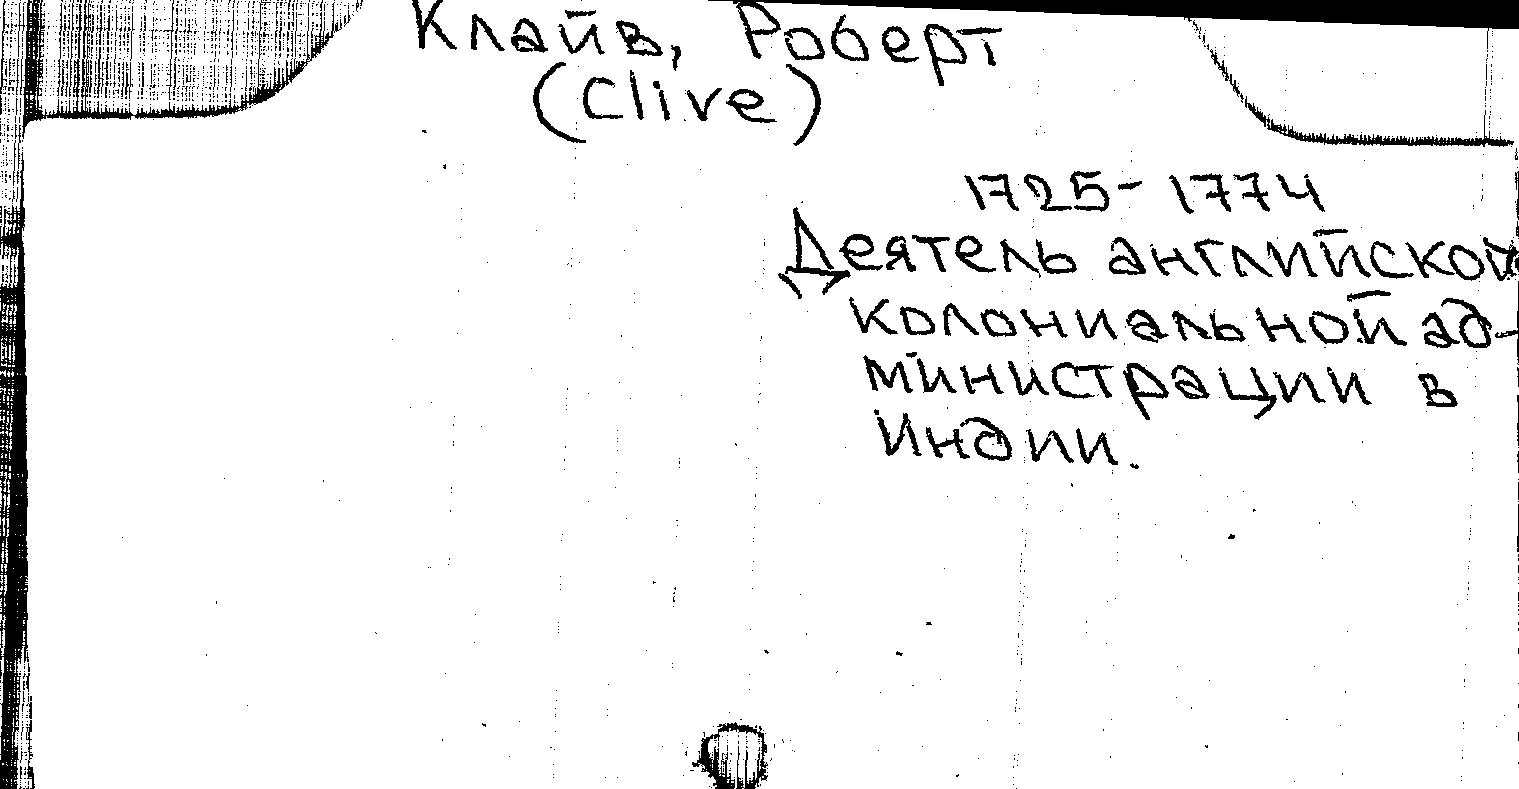 Клайв, Роберт
(Clive)
1725-1774
Деятель английской
колониальной ад-
министрации в
Индии.